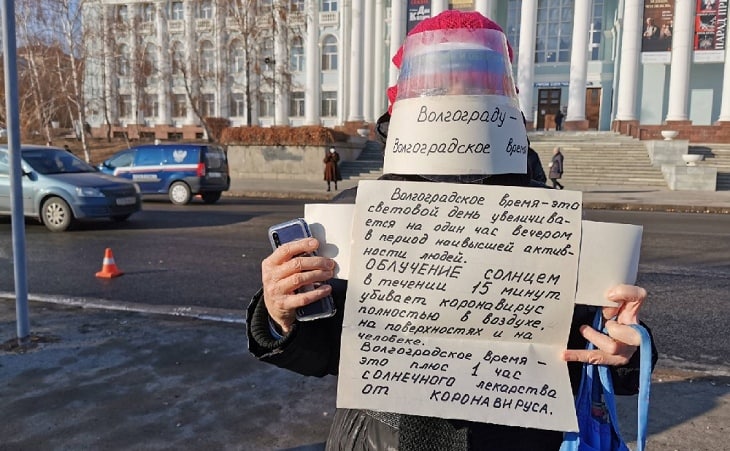 Волгограду -
Волгоградское время
Волгоградское время-это
световой день увеличива-
ется на один час вечером
в период наивысшей актив-
ности людей.
ОБЛУЧЕНИЕ СОЛНЦЕМ
в течении 15 минут
убивает коронавирус
полностью в воздухе,
на поверхностях и на
человеке.
Волгоградское время -
это плюс 1 час
СОЛНЕЧНОГО лекарства
ОТ КОРОНАВИРУСА.